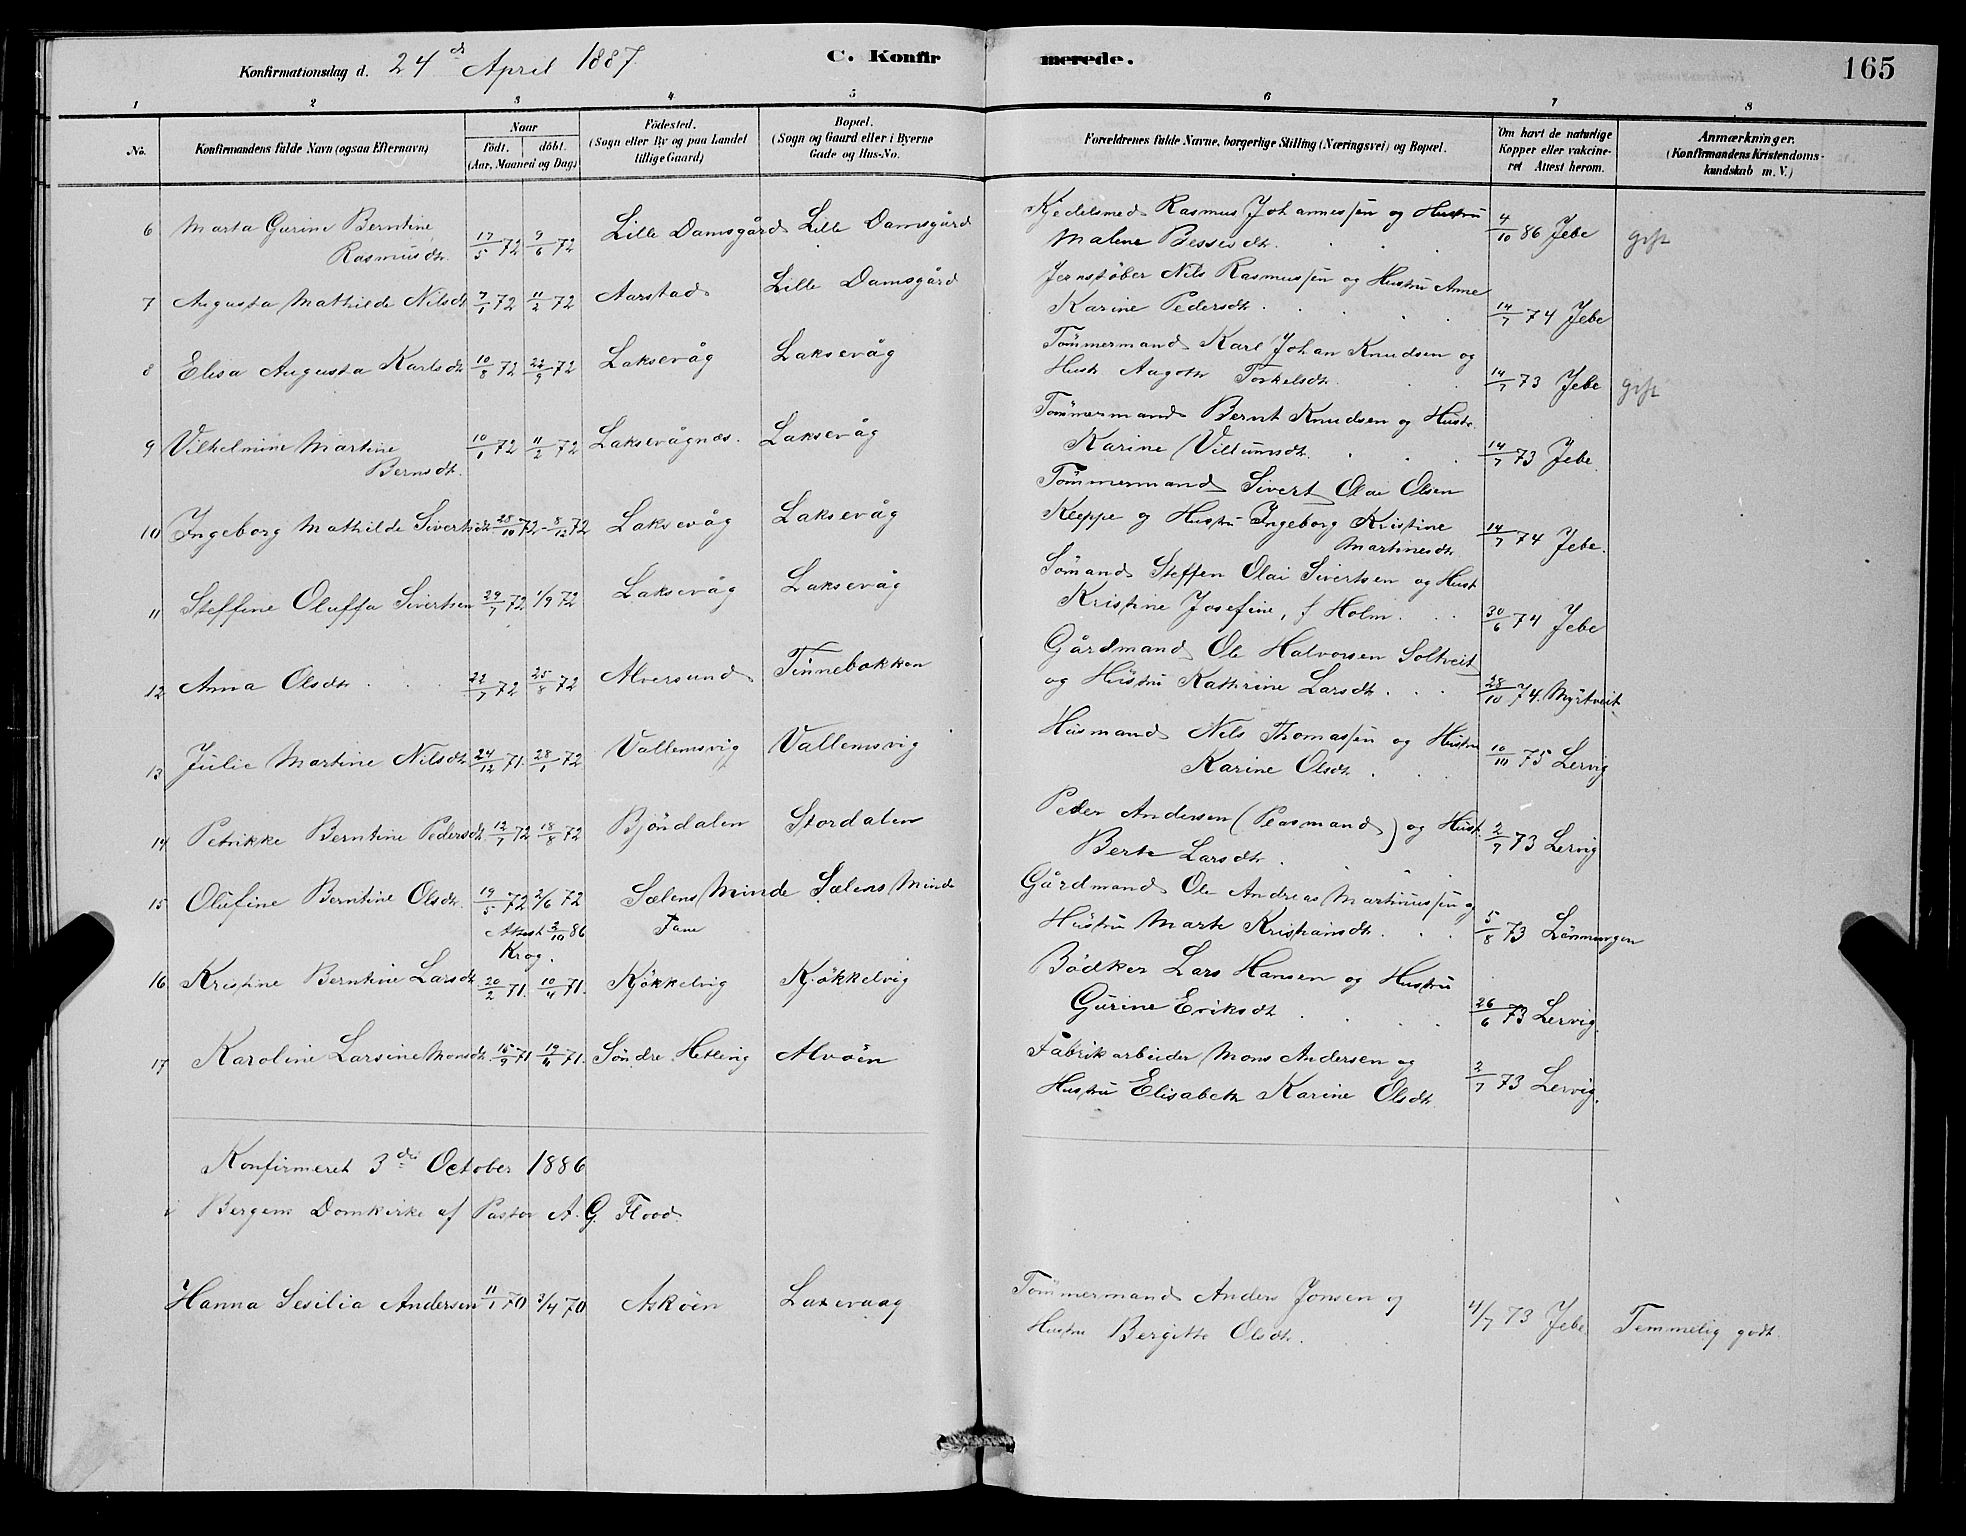 Konfirmationsdag d. 24de April 1887 C. Konfirmerede. 165
1 2 3 4 5 6 7 8
No. Konfirmandens fulde Navn (ogsaa Efternavn) Naar født. døbt. (Aar, Maaned og Dag) Fødested. (Sogn eller By og paa Landet tillige Gaard) Bopæl. (Sogn og Gaard eller i Byerne Gade og Hus-No. Forældrenes fulde Navne, borgerlige Stilling (Næringsvei) og Bopæl. Om havt de naturlige Kopper eller vakcineret Attest herom. Anmærkninger. (Konfirmandens Kristendomskundskab m. V.)
6 Marta Gurine Berntine 17/5 72 9/6 72 Lille Damsgård Lille Damsgård Kjedelsmed Rasmus Johannessen og Hustru 4/10 86 Jebe gift
Rasmusdtr. Malene Bessesdtr.
7 Augusta Mathilde Nilsdtr 7/1 72 11/2 72 Aarstad Lille Damsgård Jernstøber Nils Rasmussen og Hustru Anne
Karine Pedersdtr. 14/7 74 Jebe
8 Elisa Augusta Karlsdtr 10/8 72 22/9 72 Laksevåg Laksevåg Tømmermand Karl Johan Knudsen og
Hustr. Aagoth Torkelsdtr. 14/7 73 Jebe gift
9 Vilhelmine Martine 10/1 72 11/2 72 Laksevågnæs. Laksevåg Tømmermand Bernt Knudsen og Hustr.
Bernsdtr. Karine Villumsdtr. 14/7 73 Jebe.
10 Ingeborg Mathilde Sivertsdtr. 28/10 72 8/12 72 Laksevåg Laksevåg Tømmermand Sivert Olai Olsen
Kleppe og Hustru Ingeborg Kristine 14/7 74 Jebe.
Martinesdtr
11 Steffine Oluffa Sivertsen 29/7 72 1/9 72 Laksevåg Laksevåg Sømand Steffen Olai Sivertsen og Hust
Kristine Josefine, f Holm. 30/6 74 Jebe
12 Anna Olsdtr 22/7 72 25/8 72 Alversund Tinnebakken Gårdmand Ole Halvorsen Soltveit
og Hustru Kathrine Larsdtr. 28/10 74. Myrtveit
13 Julie Martine Nilsdtr 24/12 71. 28/1 72 Vallemsvig Vallemsvig Husmand Nils Thomassen og Hustru
Karine Olsdtr. 10/10 75 Lervig
14 Petrikke Berntine Pedersdtr. 12/7 72 18/8 72 Bjöndalen Stordalen Peder Andersen (Pladsmand) og Hust.
Berte Larsdtr. 2/7 73 Lervig
15 Olufine Berntine Olsdtr. 19/5 72 2/6 72 Sælens Minde Sælens Minde Gårdmand Ole Andreas Martinussen og
Attest 3/10 86 Fane Hustru Marte Kristiansdtr. 5/8 73 Lönningen
Krog.
16 Kristine Berntine Larsdtr 20/2 71. 10/4 71. Kjøkkelvig Kjøkkelvig Bödker Lars Hansen og Hustru
Gurine Eriksdtr 26/6 73 Lervig.
17 Karoline Larsine Monsdtr. 15/9 71 19/11 71. Söndre Hetlevig Alvöen Fabrikarbeider Mons Andersen og
Hustru Elisabeth Karine Olsdtr. 2/7 73 Lervig.
Konfirmeret 3die October 1886
i Bergens Domkirke af Pastor A. G. Flood.
Hanna Sesilia Andersen 11/1 70 3/4 70 Askøen Laxevaag Tømmermand Anders Jonsen og
Hustru Bergitte Olsdtr. 4/7 73 Jebe Temmelig godt.